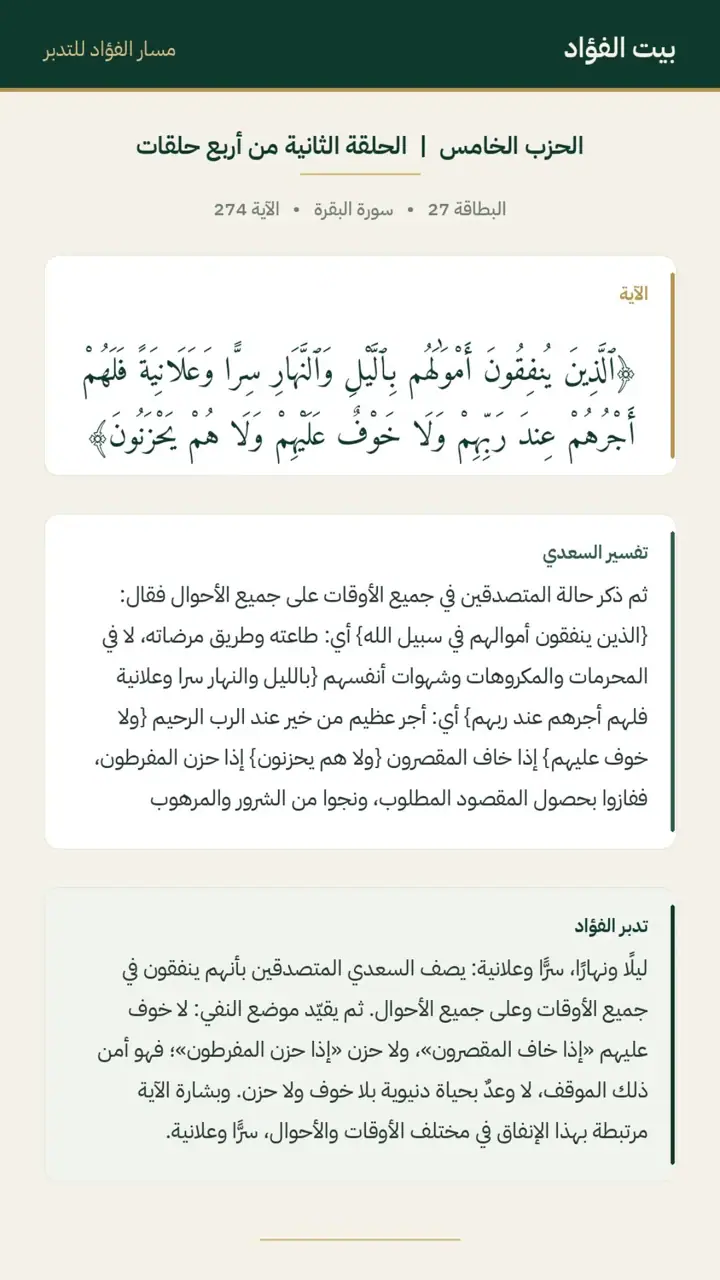 بيت الفؤاد
مسار الفؤاد للتدبر
الحزب الخامس | الحلقة الثانية من أربع حلقات
البطاقة 27 • سورة البقرة • الآية 274
الآية
﴿ٱلَّذِينَ يُنفِقُونَ أَمْوَٰلَهُم بِٱلَّيْلِ وَٱلنَّهَارِ سِرًّا وَعَلَانِيَةً فَلَهُمْ
أَجْرُهُمْ عِندَ رَبِّهِمْ وَلَا خَوْفٌ عَلَيْهِمْ وَلَا هُمْ يَحْزَنُونَ﴾
تفسير السعدي
ثم ذكر حالة المتصدقين في جميع الأوقات على جميع الأحوال فقال:
{الذين ينفقون أموالهم في سبيل الله} أي: طاعته وطريق مرضاته، لا في
المحرمات والمكروهات وشهوات أنفسهم {بالليل والنهار سرا وعلانية
فلهم أجرهم عند ربهم} أي: أجر عظيم من خير عند الرب الرحيم {ولا
خوف عليهم} إذا خاف المقصرون {ولا هم يحزنون} إذا حزن المفرطون،
ففازوا بحصول المقصود المطلوب، ونجوا من الشرور والمرهوب
تدبر الفؤاد
ليلًا ونهارًا، سرًّا وعلانية: يصف السعدي المتصدقين بأنهم ينفقون في
جميع الأوقات وعلى جميع الأحوال. ثم يقيّد موضع النفي: لا خوف
عليهم «إذا خاف المقصرون»، ولا حزن «إذا حزن المفرطون»؛ فهو أمن
ذلك الموقف، لا وعدٌ بحياة دنيوية بلا خوف ولا حزن. وبشارة الآية
مرتبطة بهذا الإنفاق في مختلف الأوقات والأحوال، سرًّا وعلانية.